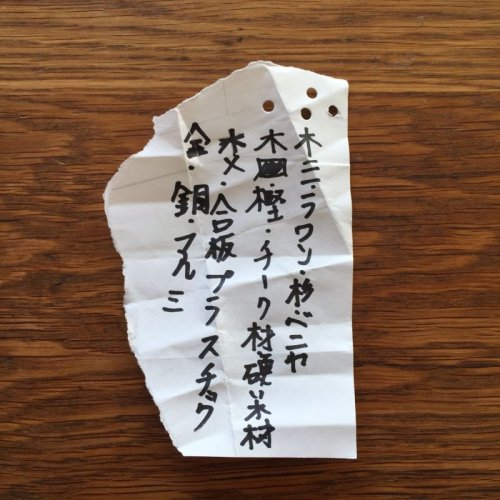 木ミ・ラワン・杉・ベニヤ
木・樫・チーク材硬い木材
木メ・合板プラスチック
金・銅・アルミ